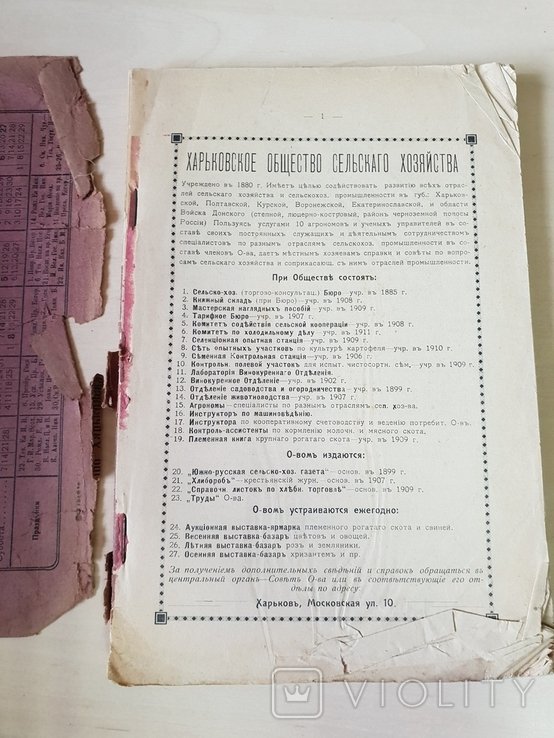 — 1 —
ХАРЬКОВСКОЕ ОБЩЕСТВО СЕЛЬСКАГО ХОЗЯЙСТВА
Учреждено въ 1880 г. Имѣетъ цѣлью содѣйствовать развитію всѣхъ отрас-
лей сельскаго хозяйства и сельскохоз. промышленности въ губ.: Харьков-
ской, Полтавской, Курской, Воронежской, Екатеринославской, и области
Войска Донского (степной, люцерно-костровый, районъ черноземной полосы
Россіи) Пользуясь услугами 10 агрономовъ и ученыхъ управителей въ со-
ставѣ своихъ постоянныхъ служащихъ и дѣятельнымъ сотрудничествомъ
спеціалистовъ по разнымъ отраслямъ сельскохоз. промышленности въ со-
ставѣ членовъ О-ва, даетъ мѣстнымъ хозяевамъ справки и совѣты по вопро-
самъ сельскаго хозяйства и соприкасающ. съ нимъ отраслей промышленности.
При Обществѣ состоятъ:
1. Сельско-хоз. (торгово-консультац.) Бюро—учр. въ 1885 г.
2. Книжный складъ (при Бюро)—учр. въ 1908 г.
3. Мастерская наглядныхъ пособій—учр. въ 1909 г.
4. Тарифное Бюро—учр. въ 1907 г.
5. Комитетъ содѣйствія сельской кооперации—учр. въ 1908 г.
6. Комитетъ по холодильному дѣлу—учр. въ 1911 г.
7. Селекціонная опытная станція—учр. въ 1909 г.
8. Сѣть опытныхъ участковъ по культурѣ картофеля—учр. въ 1910 г.
9. Сѣменная Контрольная станція—учр. въ 1906 г.
10. Контрольн. полевой участокъ для испыт. чистосортн. сѣм.—учр. въ 1909 г.
11. Лабораторія Винокуреннаго Отдѣленія.
12. Винокуренное Отдѣленіе—учр. въ 1902 г.
13. Отдѣленіе садоводства и огородничества—учр. въ 1899 г.
14. Отдѣленіе животноводства—учр. въ 1907 г.
15. Агрономы—спеціалисты по разнымъ отраслямъ сел. хоз-ва.
16. Инструкторъ по машиновѣдѣнію.
17. Инструктора по кооперативному счетоводству и веденію потребит. О-въ.
18. Контроль-ассистенты по кормленію молочн. и мясного скота.
19. Племенная книга крупнаго рогатаго скота—учр. въ 1909 г.
О-вомъ издаются:
20. „Южно-русская сельско-хоз. газета“—основ. въ 1899 г.
21. „Хлиборобъ“—крестьянскій журн. основ. въ 1907 г.
22. „Справочн листокъ по хлѣбн. торговлѣ“—основ. въ 1909 г.
23. „Труды“ О-ва.
О-вомъ устраиваются ежегодно:
24. Аукціонная выставка-ярмарка племенного рогатаго скота и свиней.
25. Весенняя выставка-базаръ цвѣтовъ и овощей.
26. Лѣтняя выставка-базаръ розъ и земляники.
27. Осенняя выставка-базаръ хризантемъ и пр.
За полученіемъ дополнительныхъ свѣдѣній и справокъ обращаться въ
центральный органъ—Совѣтъ О-ва или въ соотвѣтствующіе его от-
дѣлы по адресу:
Харьковъ, Московская ул. 10.
VIOLITY